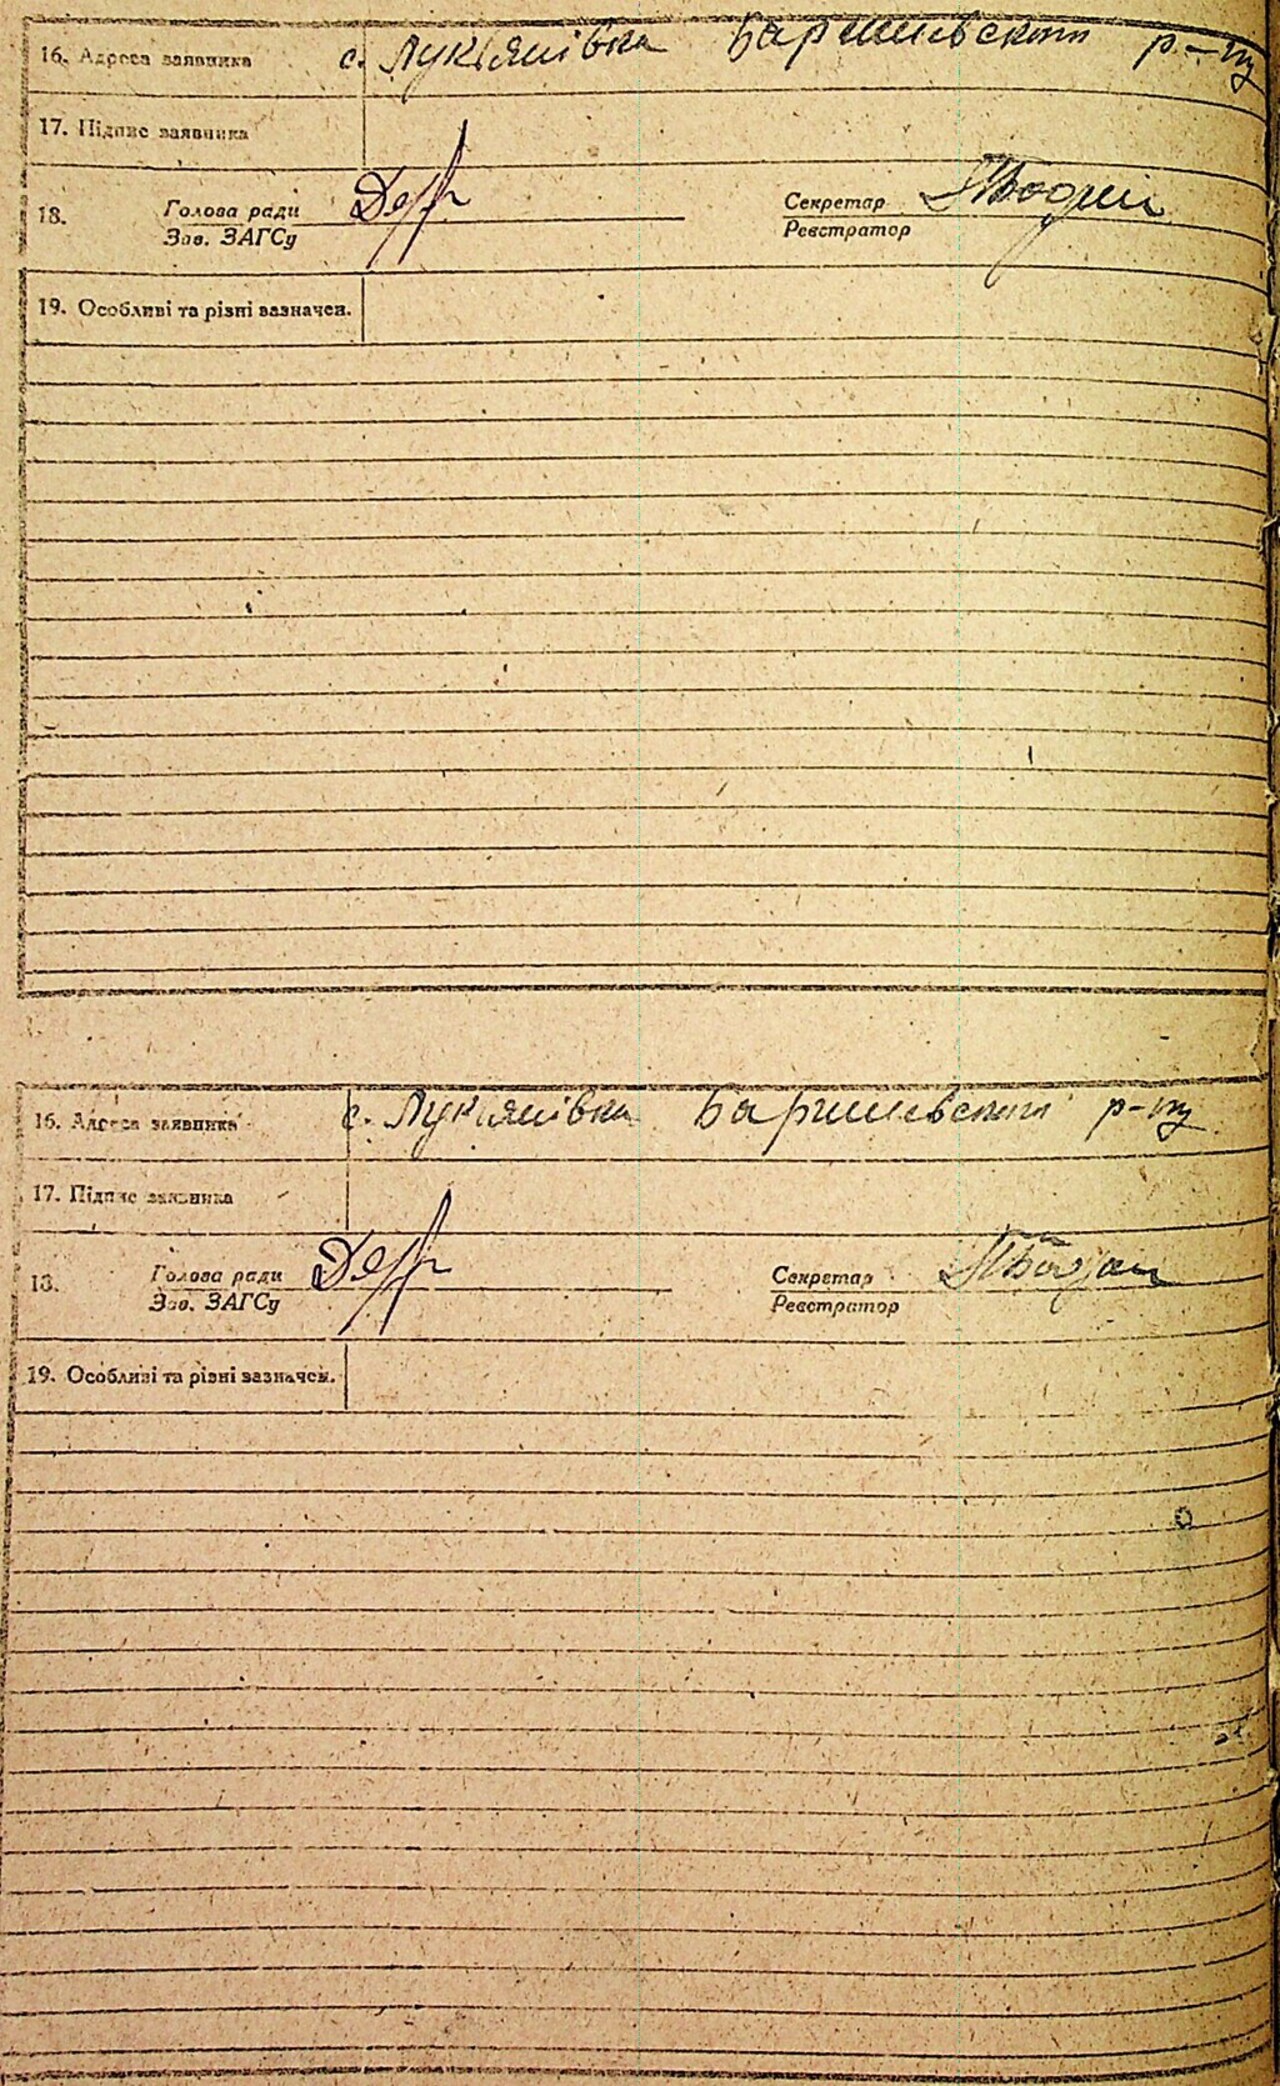 16. Адреса заявника с. Лукʼянівка Баришівського р-ну
17. Підпис заявника
18. Голова ради Секретар
Зав. ЗАГСу Реєстратор
19. Особливі та різні зазначен.
16. Адреса заявника с. Лукʼянівка Баришівського р-ну
17. Підпис заявника
18. Голова ради Секретар
Зав. ЗАГСу Реєстратор
19. Особливі та різні зазначен.